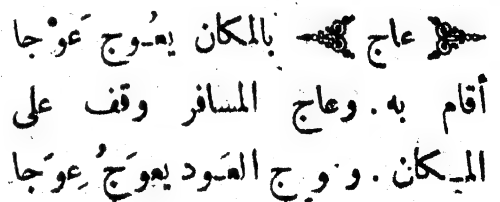 ﴿ عاج ﴾ بالمكان يعُوج عَوْجا
أقام به . وعاج المسافر وقف على
المكان . وعوج العَود يعوَجُ عِوَجا